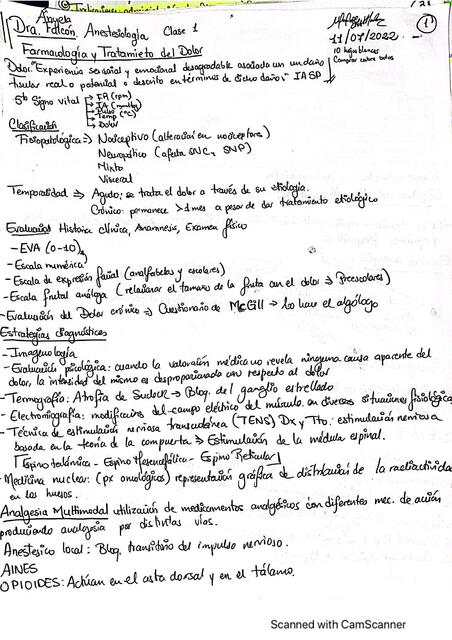 Dra. Falcon. Anestesiología Clase 1
11/07/2022
1
10 hojas blancas
Comprar sobre todos
Farmacología y Tratamiento del Dolor
Dolor: "Experiencia sensorial y emocional desagradable asociado con un daño
tisular real o potencial o descrito en términos de dicho daño" IASP
5to Signo vital → FR (rpm)
→ TA (mmHg)
→ Pulso
→ Temp (°C)
→ Dolor
Clasificación
Fisiopatológica => Nociceptivo (alteración en nociceptores)
Neuropático (afecta SNC, SNP)
Mixto
Visceral
Temporalidad => Agudo: se trata el dolor a través de su etiología.
Crónico: permanece > mes a pesar de dar tratamiento etiológico
Evaluación Historia clínica, Anamnesis, Examen físico
- EVA (0-10)
- Escala numérica
- Escala de expresión facial (analfabetas y escolares)
- Escala frutal análoga (relacionar el tamaño de la fruta con el dolor → Preescolares)
- Evaluación del Dolor crónico → Cuestionario de McGill → Lo hace el algólogo
Estrategias diagnósticas
- Imagenología
- Evaluación psicológica: cuando la valoración médica no revela ninguna causa aparente del
dolor, la intensidad del mismo es desproporcionada con respecto al dolor
- Termografía: Atrofia de Sudeck → Bloq. del ganglio estrellado
- Electromiografía: modificación del campo eléctrico del músculo en diversas situaciones fisiológicas
- Técnica de estimulación nerviosa transcutánea (TENS) Dx y Tto: estimulación nerviosa
basada en la teoría de la compuerta → Estimulación de la médula espinal.
[Espinotalámica - Espino Mesencefálica - Espino Reticular]
- Medicina nuclear: (px oncológicos) representación gráfica de distribución de la radiactividad
en los huesos.
Analgesia Multimodal utilización de medicamentos analgésicos con diferentes mec. de acción
produciendo analgesia por distintas vías.
Anestésico local: Bloq. transitorio del impulso nervioso.
AINES
OPIOIDES: Actúan en el asta dorsal y en el tálamo.
Scanned with CamScanner